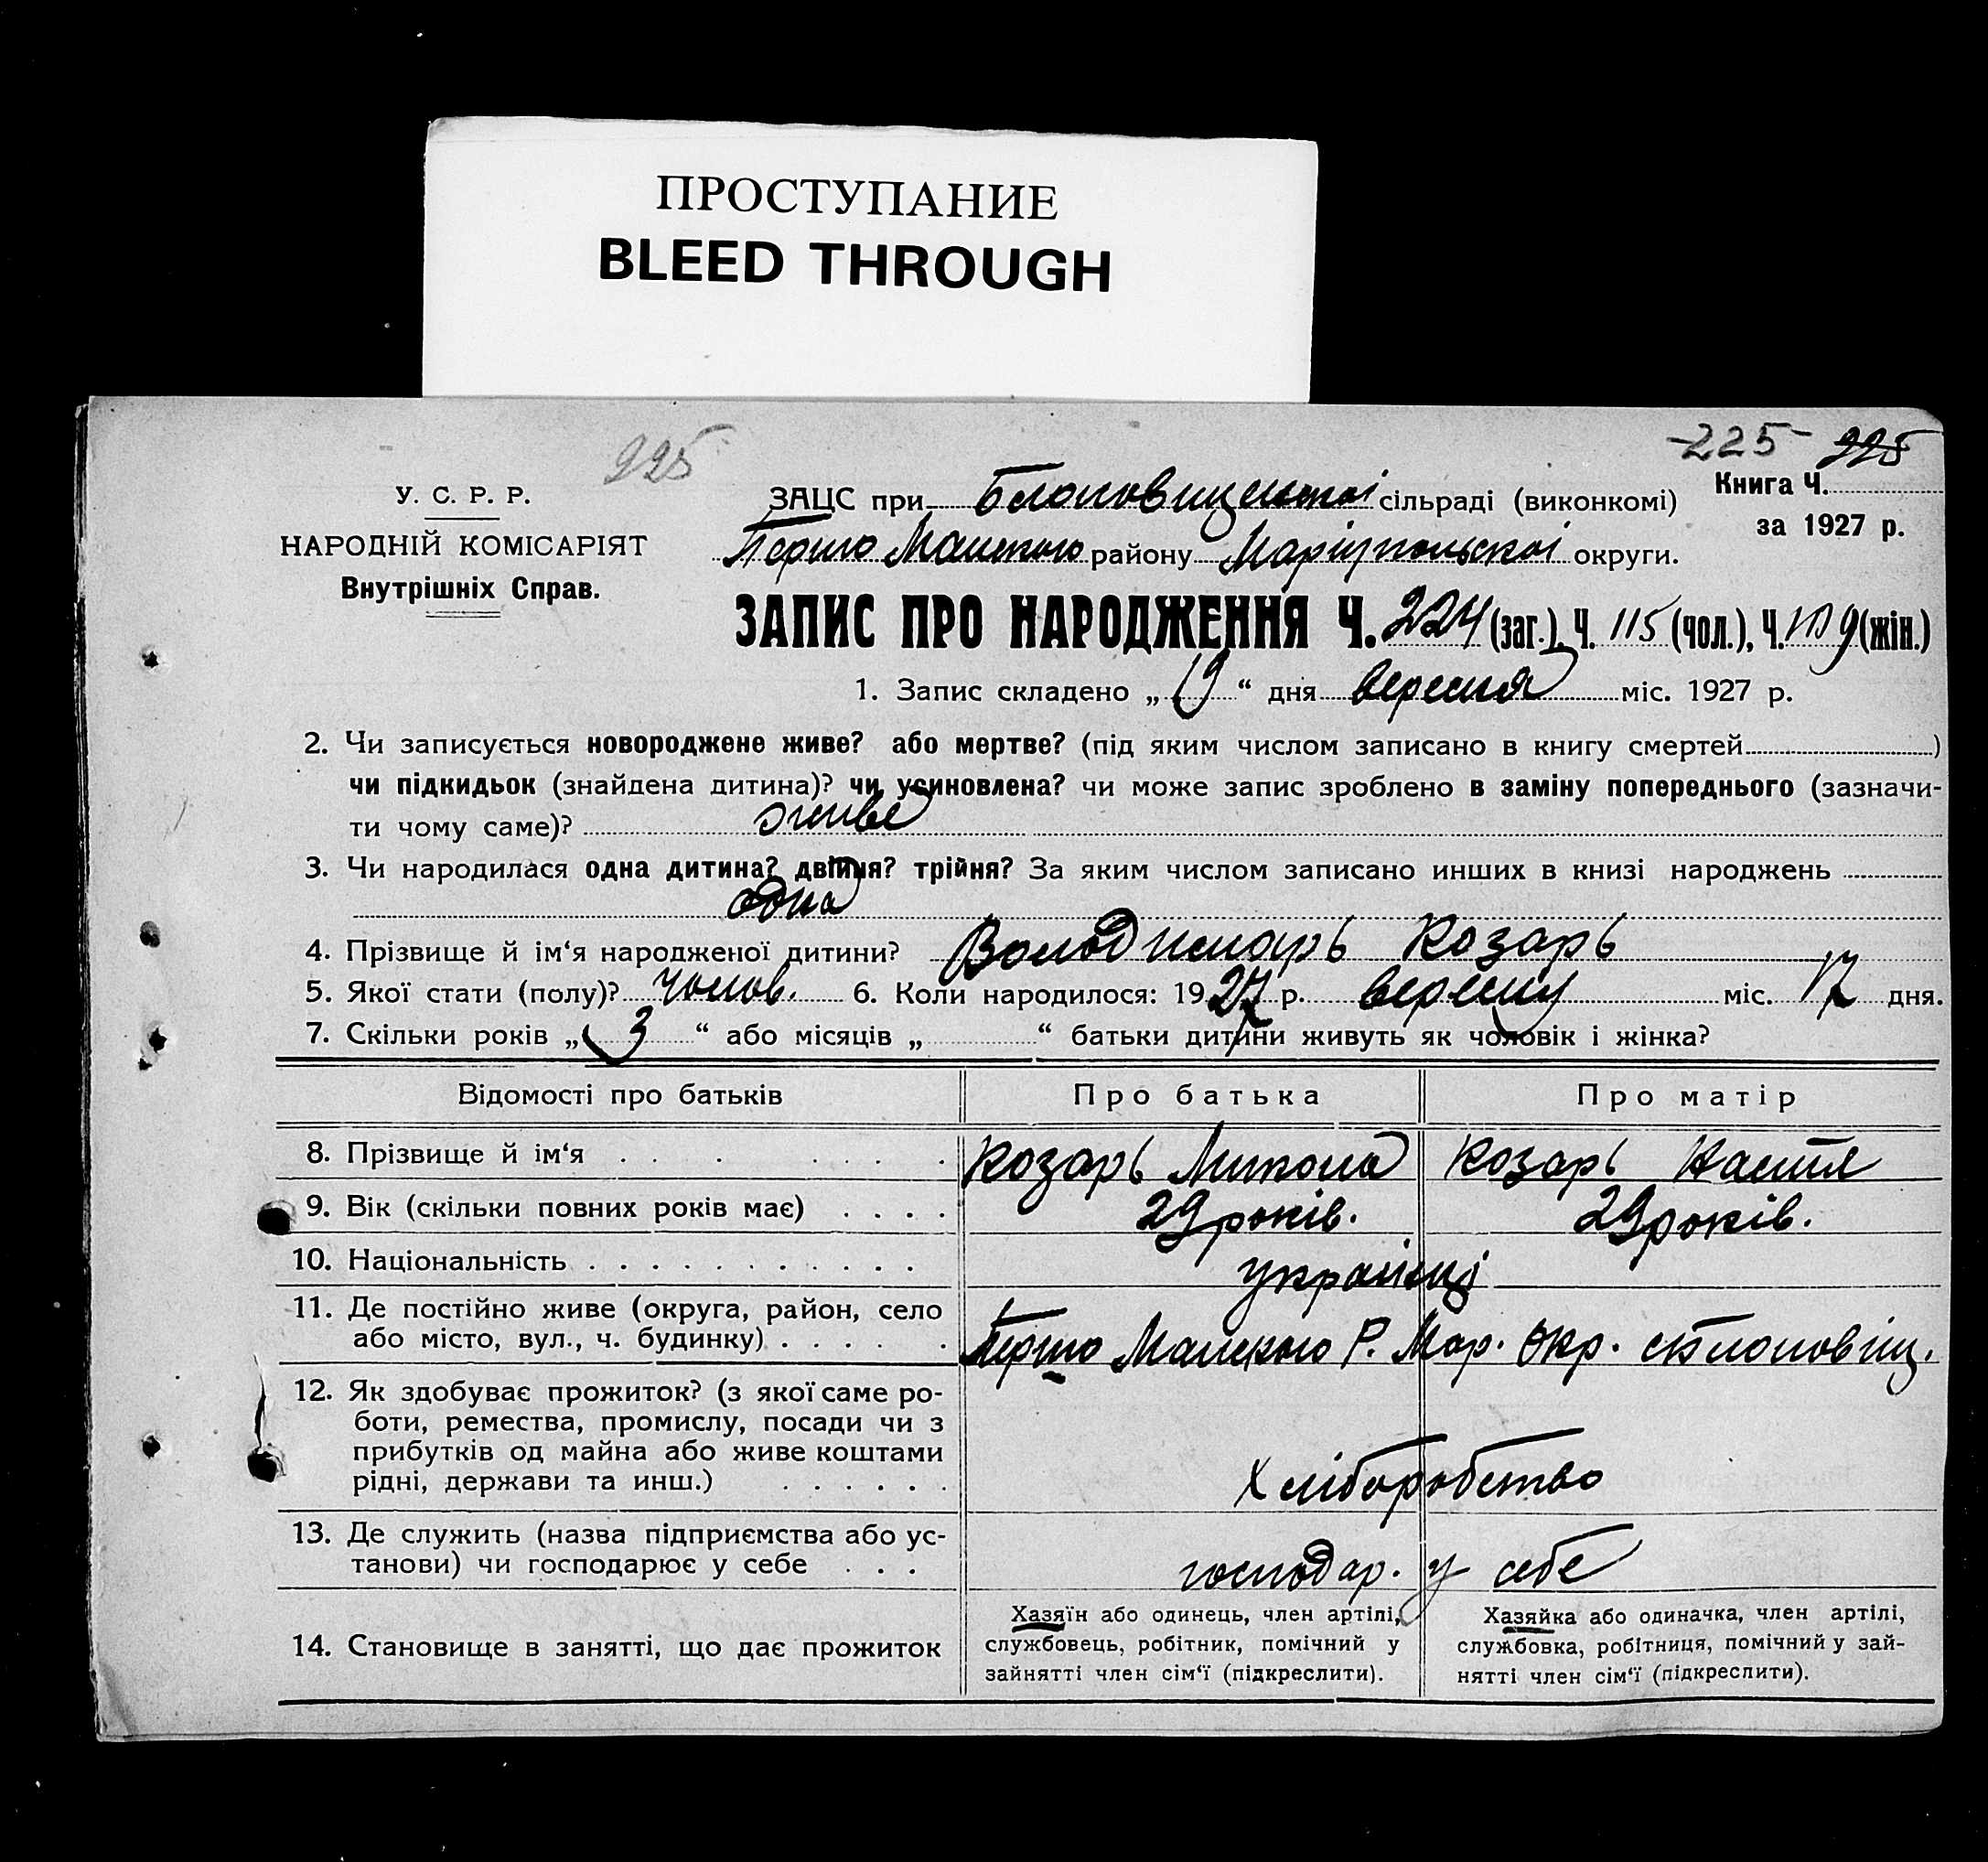 ПРОСТУПАНИЕ
BLEED THROUGH
225
-225- 225
У. С. Р. Р.
НАРОДНІЙ КОМІСАРІЯТ
Внутрішніх Справ.
ЗАЦС при сільраді (виконкомі)
Книга Ч.
за 1927 р.
Першо Майського району Маріупольскої округи.
ЗАПИС ПРО НАРОДЖЕННЯ Ч. 224 (заг.), Ч. 115 (чол.), Ч. 109 (жін.)
1. Запис складено „ 19 “ дня вересня міс. 1927 р.
2. Чи записується новороджене живе? або мертве? (під яким числом записано в книгу смертей )
чи підкидьок (знайдена дитина)? чи усиновлена? чи може запис зроблено в заміну попереднього (зазначи-
ти чому саме)? живе
3. Чи народилася одна дитина? двійня? трійня? За яким числом записано инших в книзі народжень
одна
4. Прізвище й ім‘я народженої дитини? Володимарь Козарь
5. Якої стати (полу)? чолов. 6. Коли народилося: 1927 р. вересня міс. 17 дня.
7. Скільки років „ 3 “ або місяців „ “ батьки дитини живуть як чоловік і жінка?
Відомості про батьків Про батька Про матір
8. Прізвище й ім‘я . . . . . . . Козарь Микола Козарь Настя
9. Вік (скільки повних років має) . . . . 29 років. 29 років.
10. Національність . . . . . . . . . . . українці
11. Де постійно живе (округа, район, село
або місто, вул., ч. будинку) . . . . . Першо Майського Р. Мар. Окр.
12. Як здобуває прожиток? (з якої саме ро-
боти, ремества, промислу, посади чи з
прибутків од майна або живе коштами
рідні, держави та инш.) . . . . . . Хліборобство
13. Де служить (назва підприємства або ус-
танови) чи господарює у себе . . . господар. у себе
14. Становище в занятті, що дає прожиток
Хазяїн або одинець, член артілі,
службовець, робітник, помічний у
зайнятті член сім‘ї (підкреслити).
Хазяйка або одиначка, член артілі,
службовка, робітниця, помічний у зай-
нятті член сім‘ї (підкреслити).